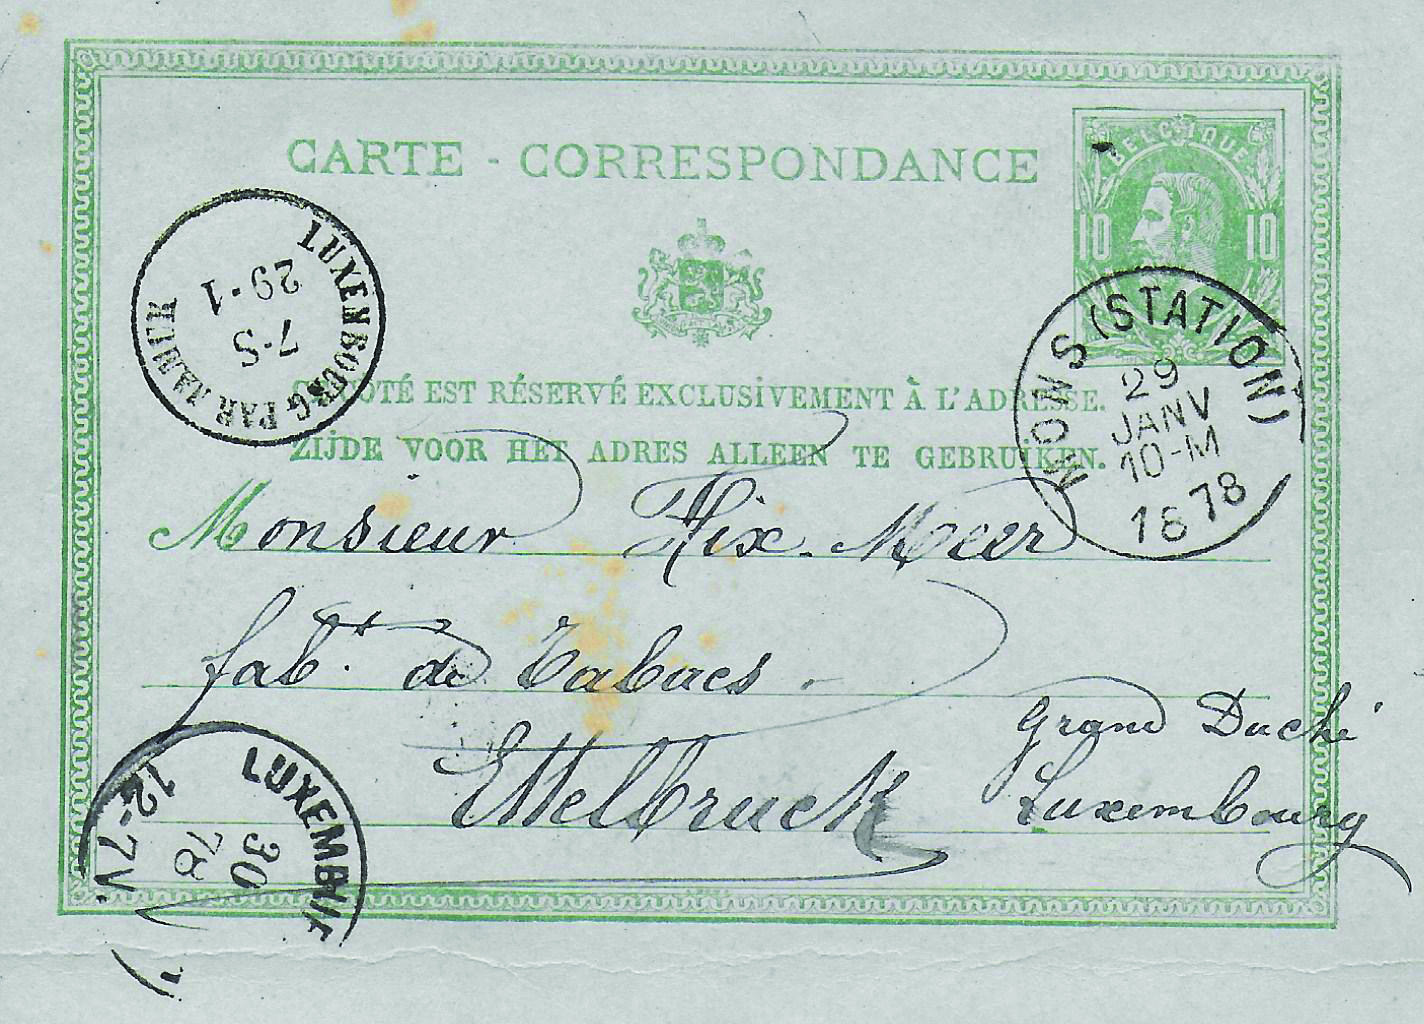 CARTE - CORRESPONDANCE
BELGIQUE
10 10
LUXEMBOURG PAR
29 · 1
7 · S
MONS (STATION)
29
JANV
10-M
1878
CÔTÉ EST RÉSERVÉ EXCLUSIVEMENT À L'ADRESSE.
ZIJDE VOOR HET ADRES ALLEEN TE GEBRUIKEN.
Monsieur
fabt. de Tabacs
Ettelbruck
Grand Duché
Luxembourg
LUXEMBHF
30
78
12-7V.